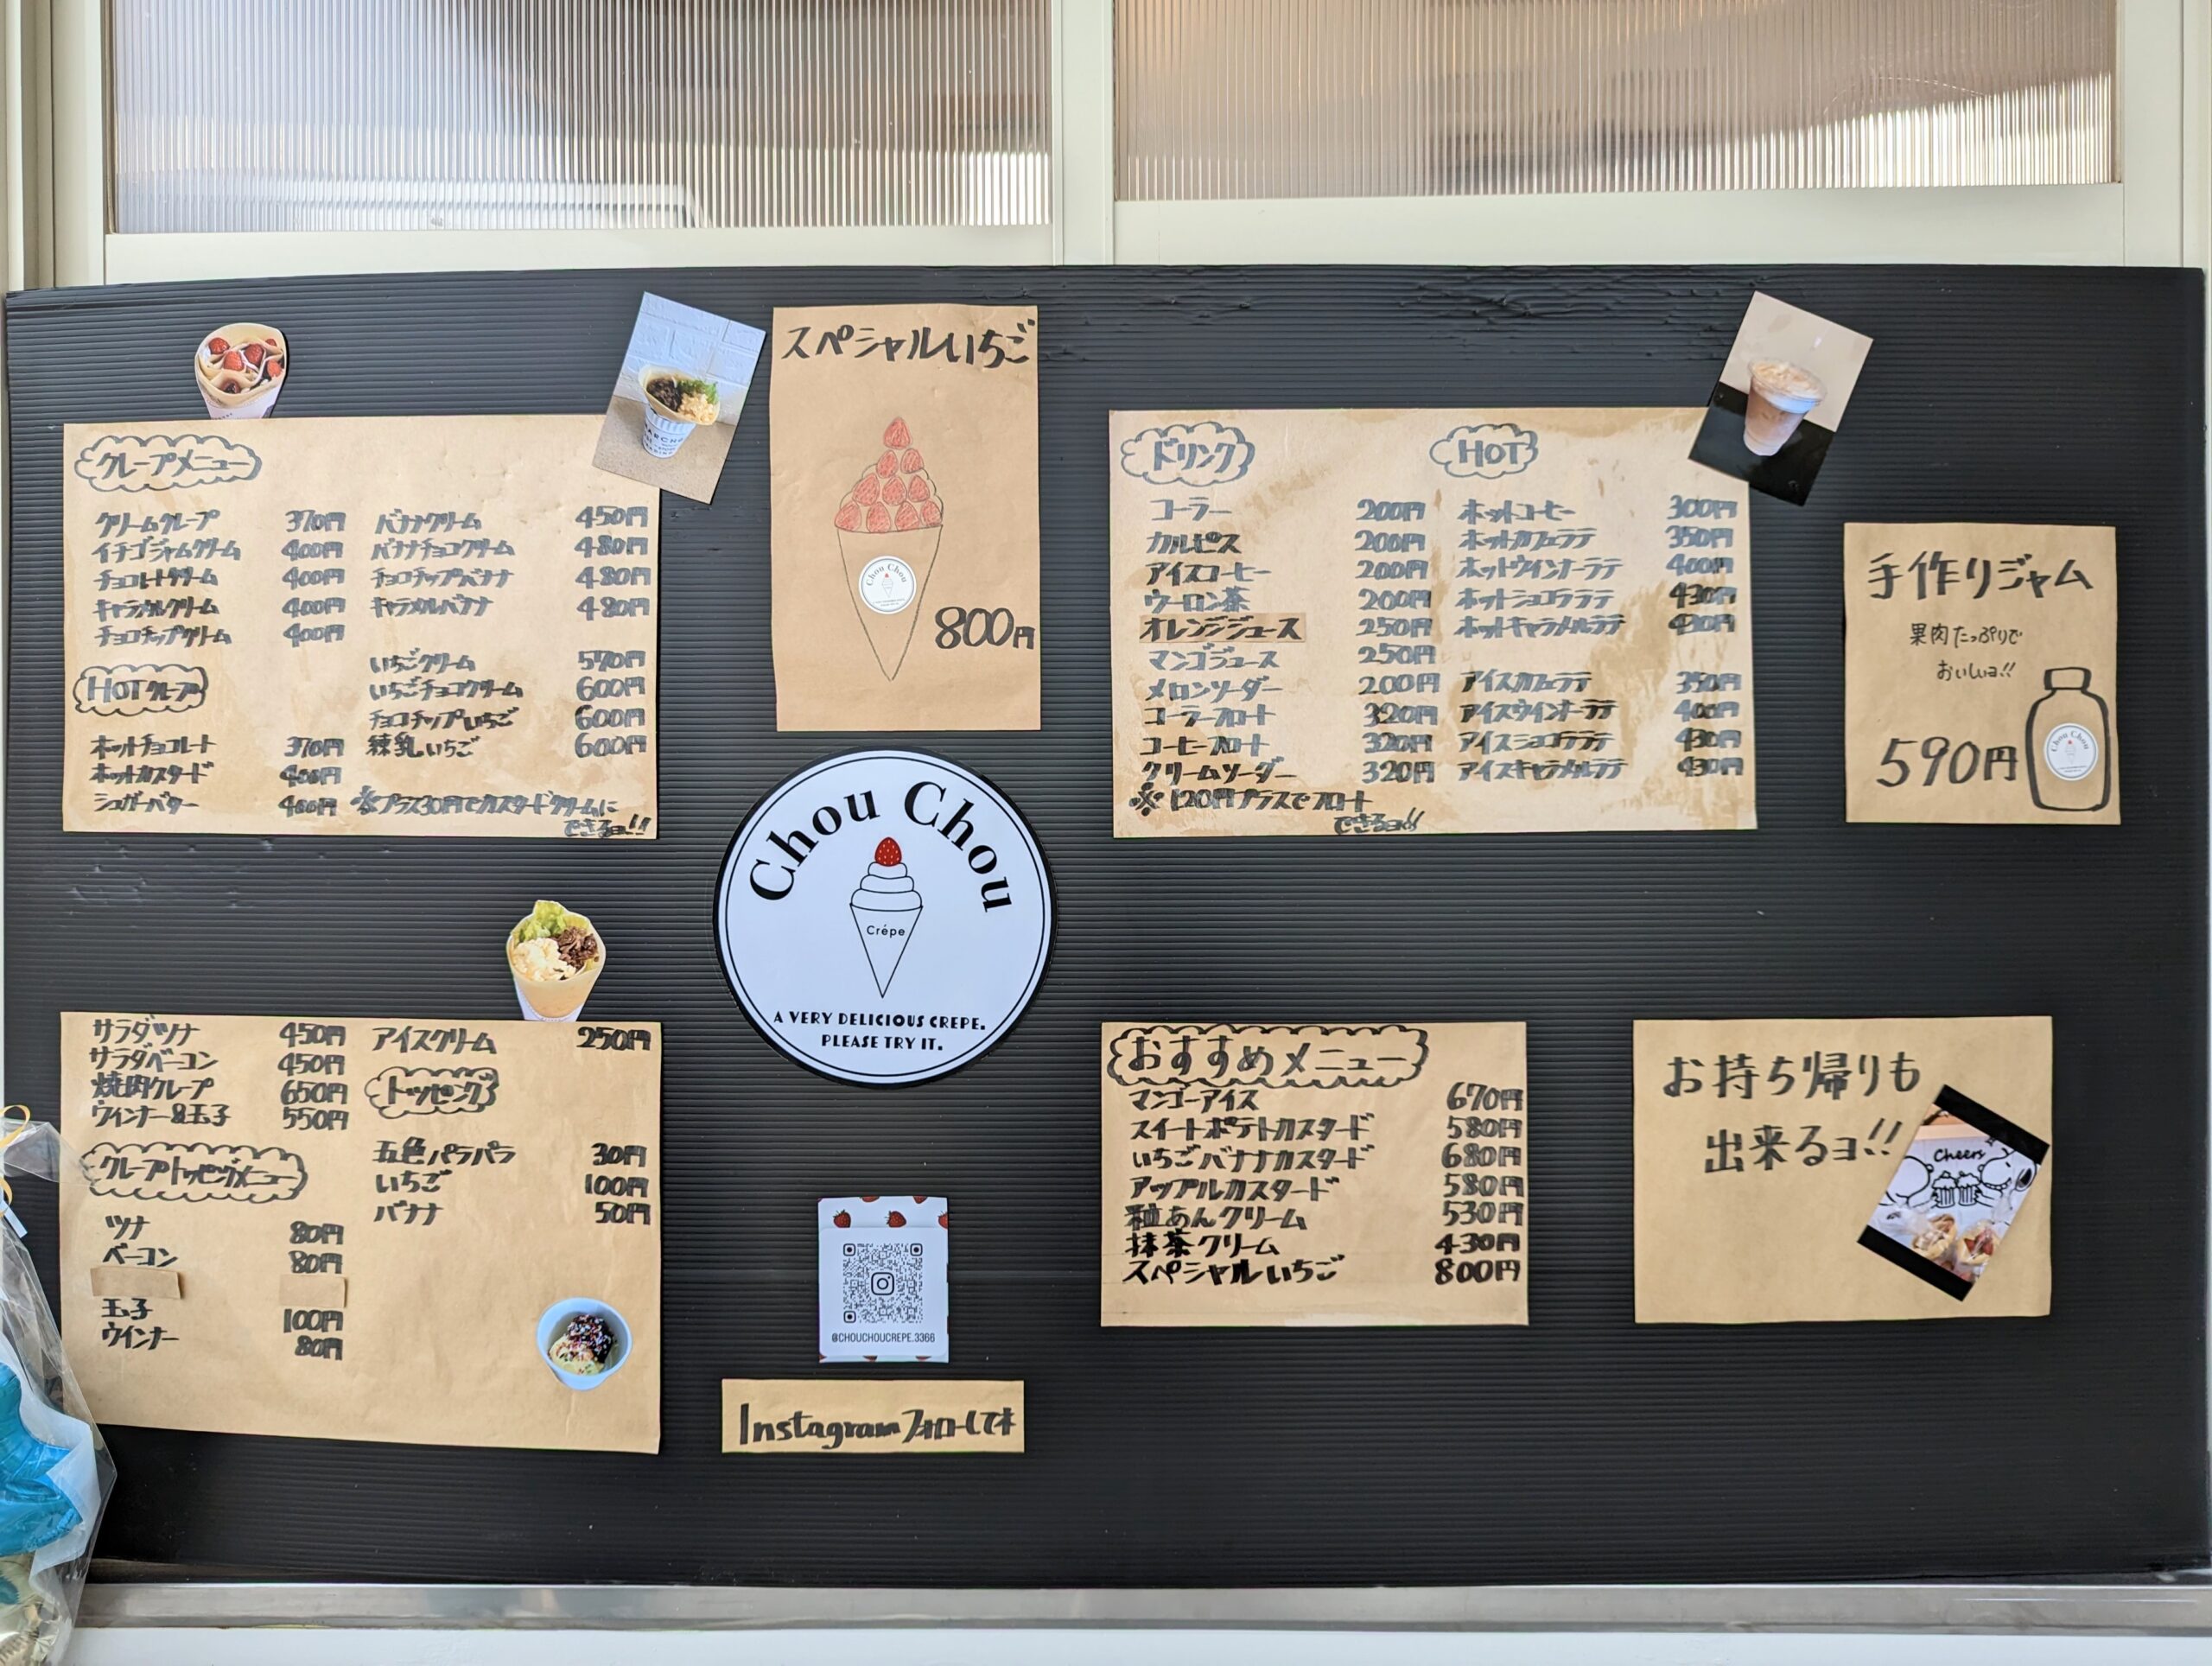 クレープメニュー
クリームクレープ 370円
イチゴジャムクリーム 400円
チョコレートクリーム 400円
キャラメルクリーム 400円
チョコチップクリーム 400円
HOTクレープ
ホットチョコレート 370円
ホットカスタード 400円
シュガーバター 400円
バナナクリーム 450円
バナナチョコクリーム 480円
チョコチップバナナ 480円
キャラメルバナナ 480円
いちごクリーム 570円
いちごチョコクリーム 600円
チョコチップいちご 600円
練乳いちご 600円
※プラス30円でカスタードクリームに
できるョ!!
スペシャルいちご
Chou Chou
800円
ドリンク
コーラー 200円
カルピス 200円
アイスコーヒー 200円
ウーロン茶 200円
オレンジジュース 250円
マンゴジュース 250円
メロンソーダー 200円
コーラーフロート 320円
コーヒーフロート 320円
クリームソーダー 320円
※120円プラスでフロート
できるョ!!
HOT
ホットコーヒー 300円
ホットカフェラテ 350円
ホットウインナーラテ 400円
ホットショコララテ 430円
ホットキャラメルラテ 430円
アイスカフェラテ 350円
アイスウインナーラテ 400円
アイスショコララテ 430円
アイスキャラメルラテ 430円
手作りジャム
果肉たっぷりで
おいしいョ!!
590円
Chou Chou
Chou Chou
Crépe
A VERY DELICIOUS CREPE.
PLEASE TRY IT.
サラダツナ 450円
サラダベーコン 450円
焼肉クレープ 650円
ウィンナー&玉子 550円
クレープトッピングメニュー
ツナ 80円
ベーコン 80円
玉子 100円
ウインナー 80円
アイスクリーム 250円
トッピング
五色パラパラ 30円
いちご 100円
バナナ 50円
@CHOUCHOUCREPE.3366
Instagramフォローしてネ
おすすめメニュー
マンゴーアイス 670円
スイートポテトカスタード 580円
いちごバナナカスタード 680円
アップルカスタード 580円
粒あんクリーム 530円
抹茶クリーム 430円
スペシャルいちご 800円
お持ち帰りも
出来るョ!!
Cheers